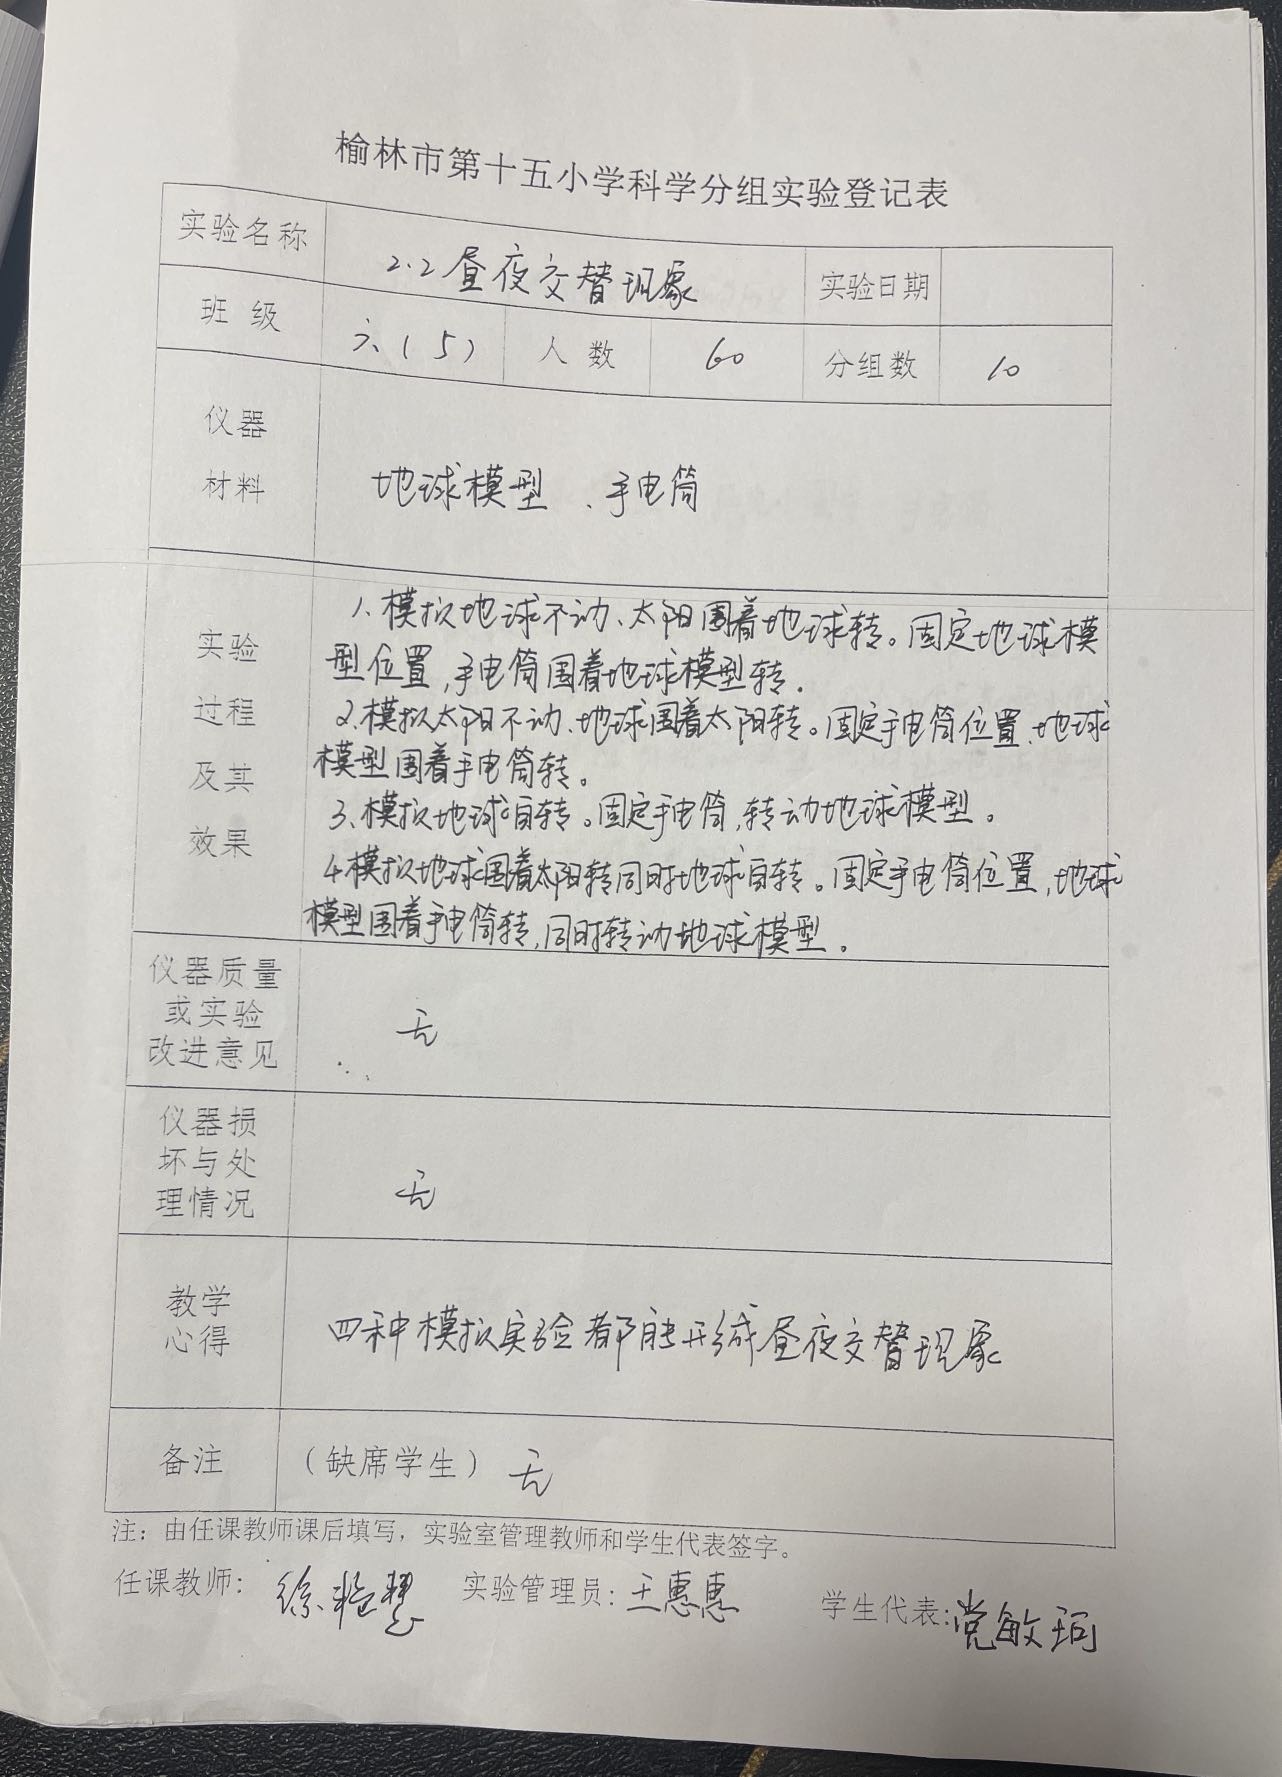 榆林市第十五小学科学分组实验登记表
实验名称 2.2昼夜交替现象 实验日期
班 级 六(5) 人 数 60 分组数 10
仪器
材料
地球模型、手电筒
实验
过程
及其
效果
1、模拟地球不动、太阳围着地球转。固定地球模
型位置,手电筒围着地球模型转.
2.模拟太阳不动、地球围着太阳转。固定手电筒位置、地球
模型围着手电筒转。
3、模拟地球自转。固定手电筒,转动地球模型。
4.模拟地球围着太阳转同时地球自转。固定手电筒位置,地球
模型围着手电筒转,同时转动地球模型。
仪器质量
或实验
改进意见
无
仪器损
坏与处
理情况
无
教学
心得
四种模拟实验都能形成昼夜交替现象
备注 (缺席学生) 无
注:由任课教师课后填写,实验室管理教师和学生代表签字。
任课教师: 徐 慧 实验管理员: 王惠惠 学生代表: 党敏珂